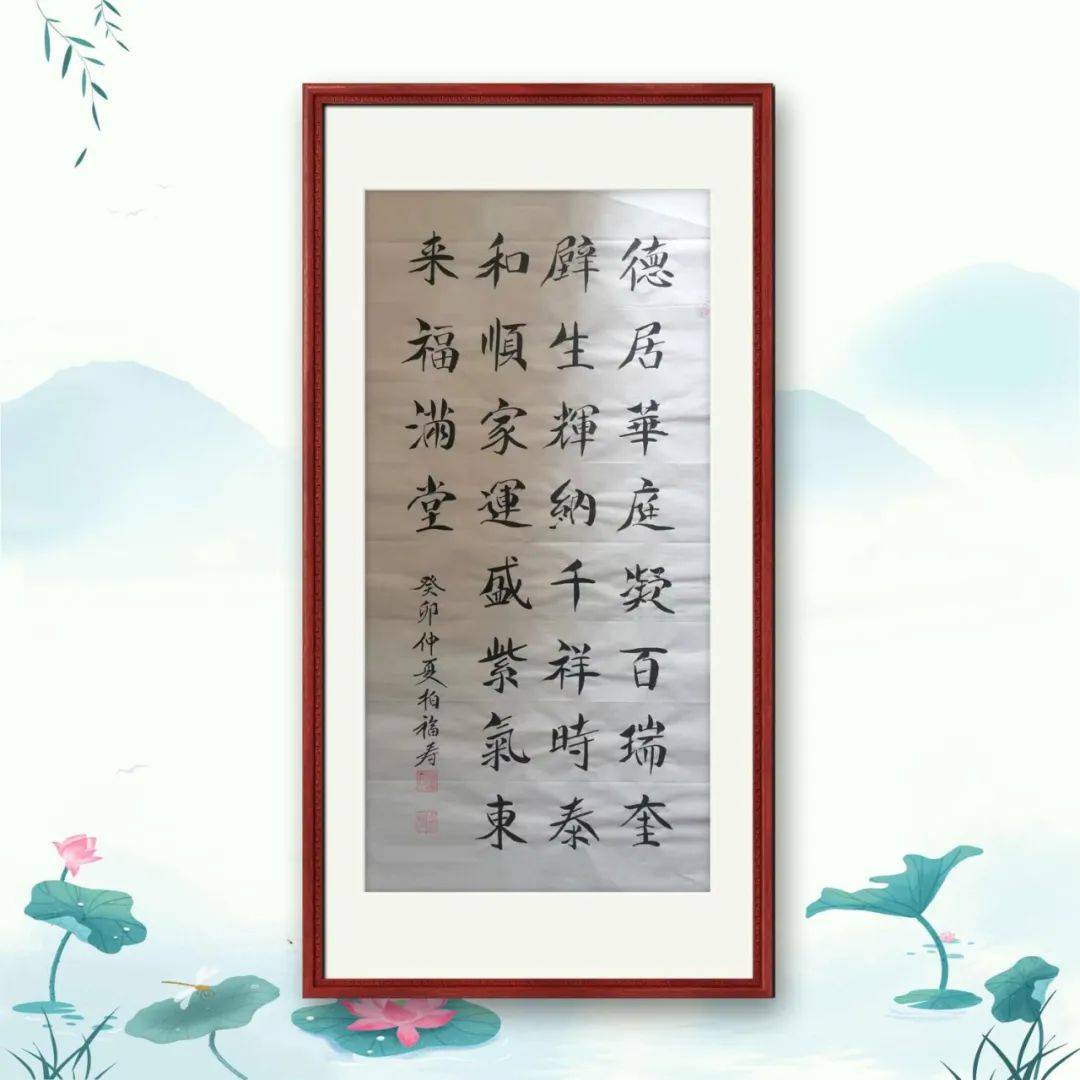 德居華庭凝百瑞奎
壁生輝納千祥時泰
和順家運盛紫氣東
来福滿堂
癸卯仲夏柏福寿